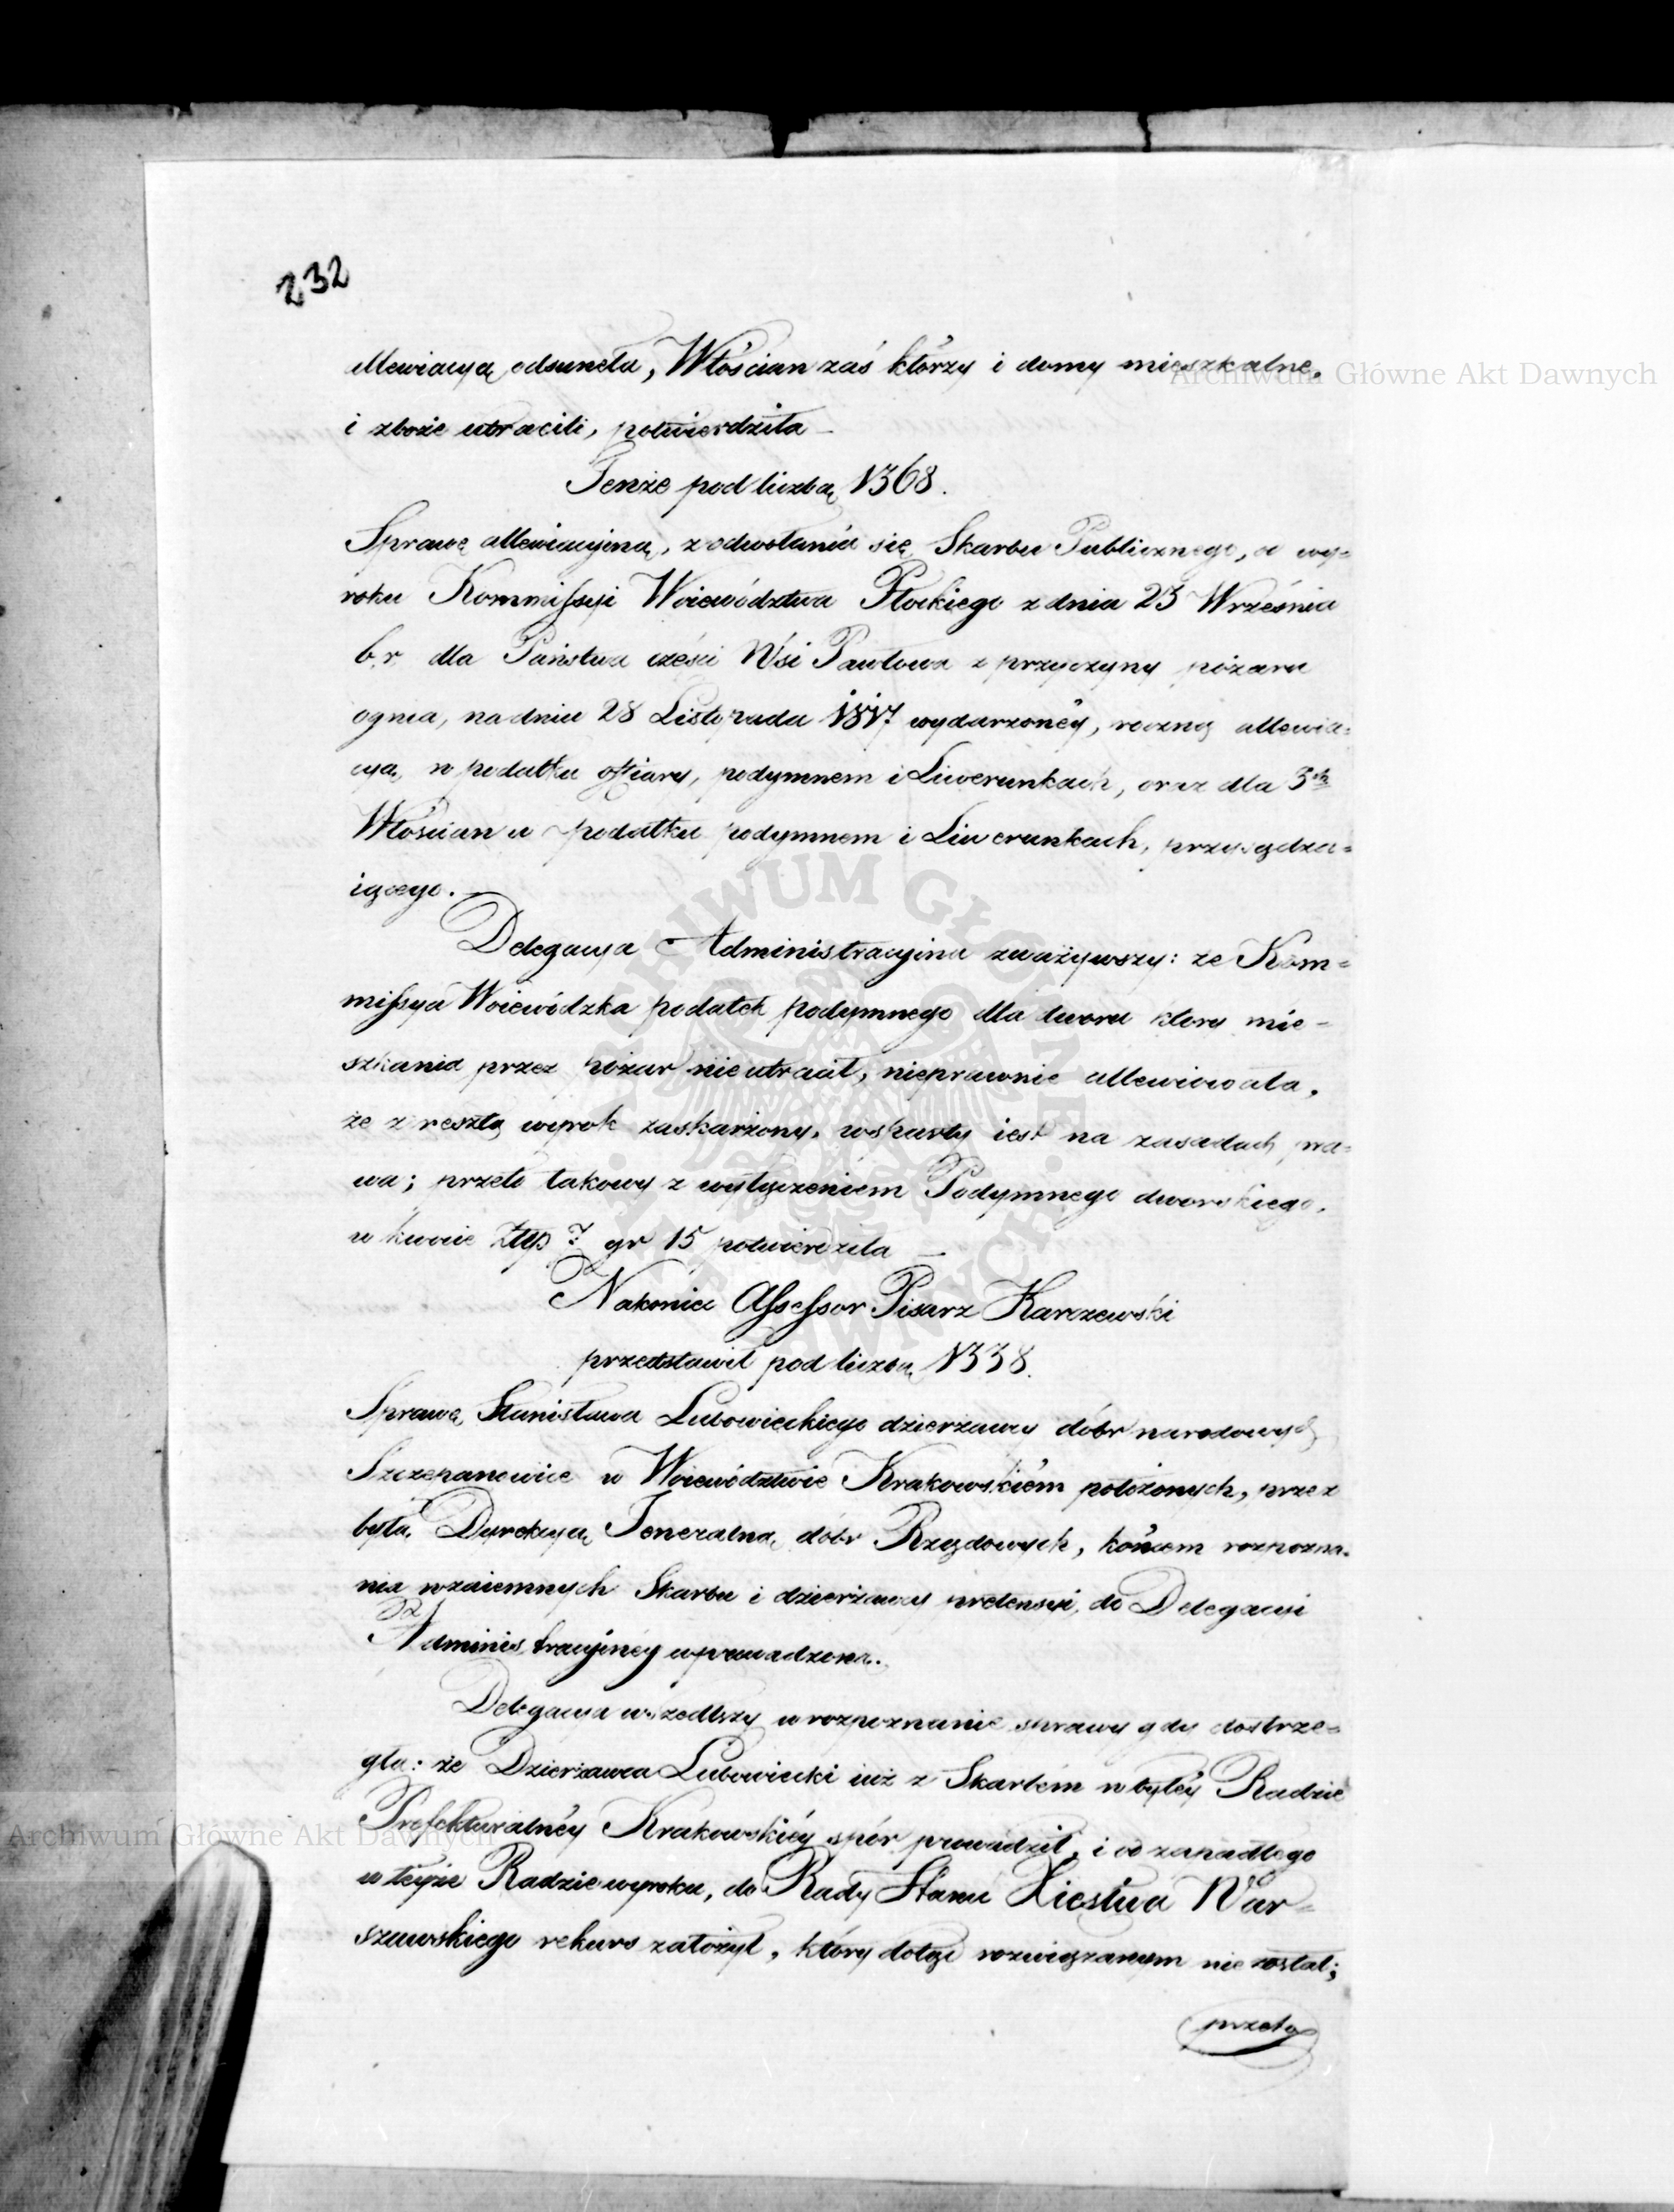 232
allewiacyą odsuneła, Włościan zaś którzy i domy mieszkalne,
i zboże utracili, potwierdziła —
Tenże pod liczbą N368.
Sprawę allewiacyiną, z odwołania się Skarbu Publicznego, od wy=
roku Kommissyi Woiewództwa Płockiego z dnia 23 Września
b.r. dla Państwa części Wsi Pawłowa z przyczyny pożaru
ognia, na dniu 28 Listopada 1817 wydarzonéy, roczną allewia=
cyą, w podatku offiary, podymnem i Liwerunkach, oraz dla 3ch
Włościan w podatku podymnem i Liwerunkach, przysądza=
iącego.
Delegacya Administracyina zważywszy: że Kom=
missya Woiewódzka podatek podymnego dla dworu który mie-
szkania przez pożar nieutracił, nieprawnie allewiowała,
że z resztą wyrok zaskarżony, wsparty iest na zasadach pra=
wa; przeto takowy z wyłączeniem Podymnego dworskiego,
w kwocie Złlp 7 gr 15 potwierdziła —
Nakoniec Assessor Pisarz Karczewski
przedstawił pod liczbą N338.
Sprawę Stanisława Lubowieckiego dzierżawcy dóbr narodowych
Szczepanowice w Woiewództwie Krakowskiém położonych, przez
byłą Dyrekcyą Jeneralną dóbr Rządowych, końcem rozpozna=
nia wzaiemnych Skarbu i dzierżawcy pretensyi, do Delegacyi
Administracyinéy wprowadzona.
Delegacya wszedłszy w rozpoznanie sprawy gdy dostrze=
gła: że Dzierżawca Lubowiecki iuż z Skarbem w byłéy Radzie
Prefekturalnéy Krakowskiéy spór prowadził, i od zapadłego
w teyże Radzie wyroku, do Rady Stanu Xięstwa War=
szawskiego rekurs założył, który dotąd rozwiązanym nie został;
przeto
Archiwum Główne Akt Dawnych
Archiwum Główne Akt Dawnych
ARCHIWUM GŁÓWNE AKT DAWNYCH